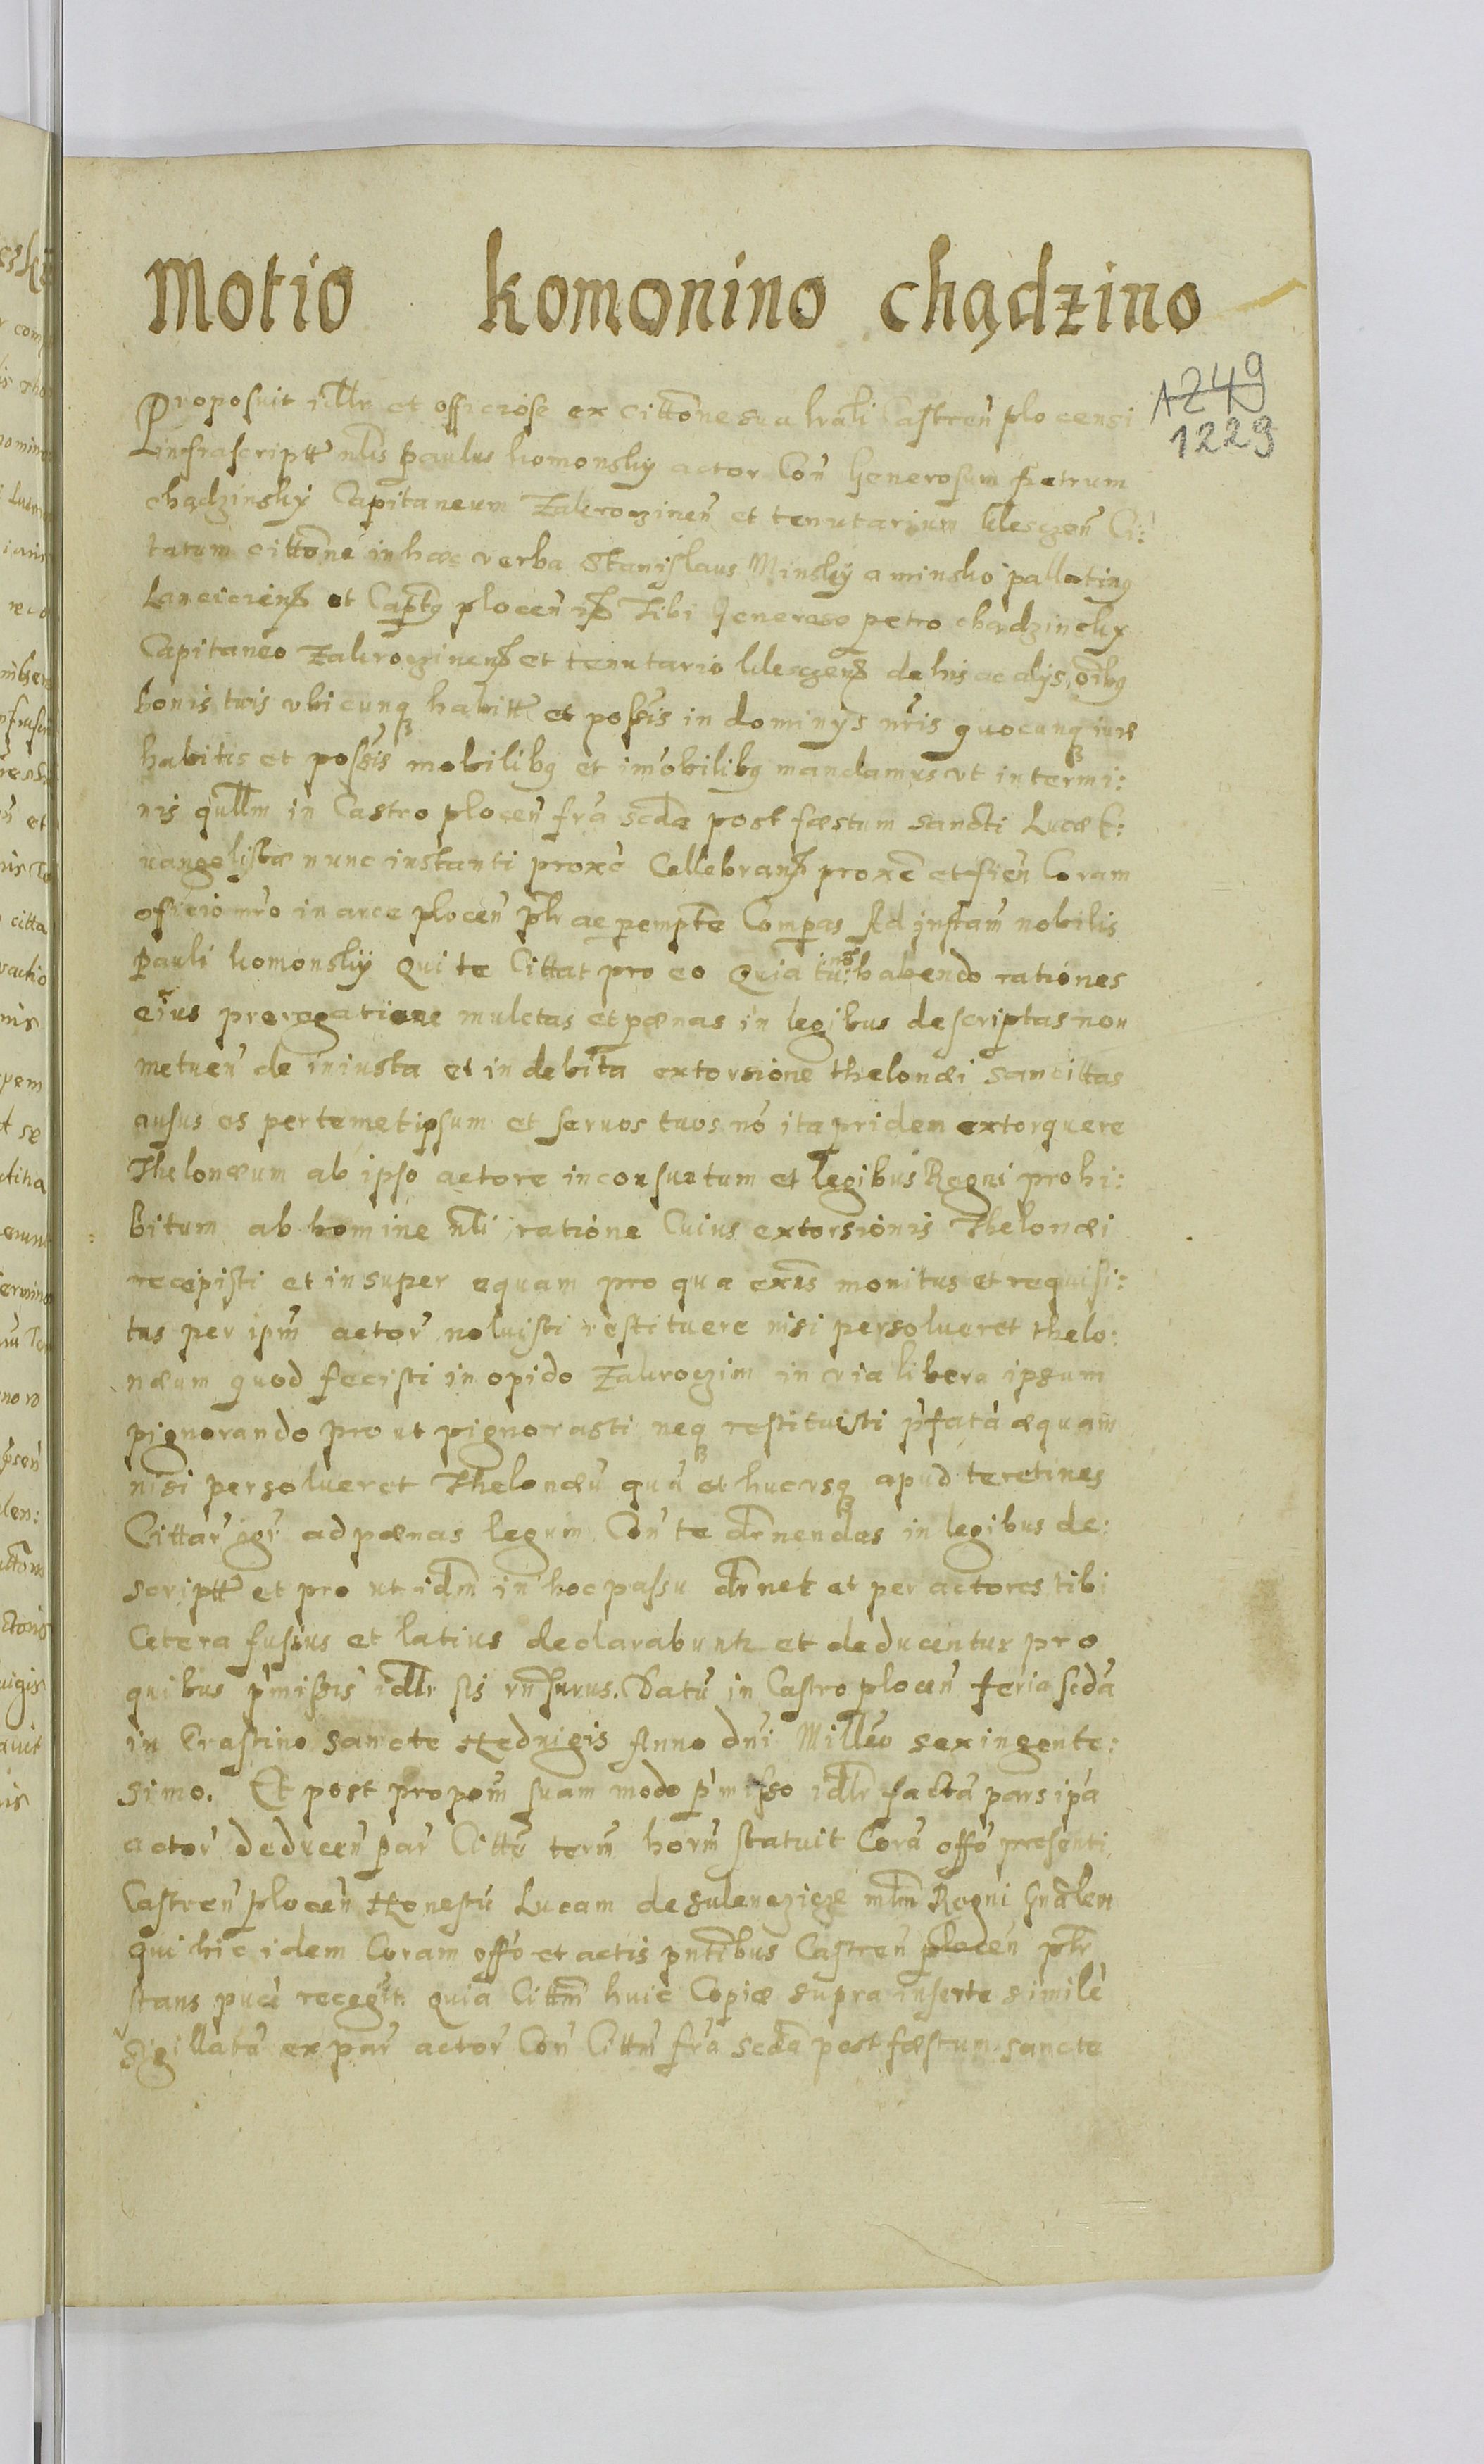 Motio komonino chądzino
1249
1229
Proposuit idllr et officiose ex cittone sua lrali Castren plocensi
infrascriptt nlis Paulus komonsky actor Con Generosum petrum
chądzinsky Capitaneum Zakroczinen et tenutarium kleczen Ci:
tatum cittone in hæc verba Stanislaus Minsky a minsko pallatinus
Lanciciens et Captus plocen Tibi Generoso petro chądzinsky
Capitaneo Zakroczinens et tenutario kleczens de his ac alys oibus
bonis tuis vbicunq habitt et possis in dominys nris quocunq iure
habitis et possis mobilibus et imobilibus mandamus vt in termi:
nis qullm in Castro plocen fra scda post fæstum sancti Lucæ E:
uangelistæ nunc instanti proxe Cellebrans proxe et fien Coram
oficio nro in arce plocen plr ac pempte Compas Ad instam nobilis
Pauli komonsky Qui te Cittat pro eo Quia tu no habendo rationes
eius prerogatione mulctas et pænas in legibus descriptas non
metuen de iniusta et indebita extorsione thelonæi sancittas
ausus es per temetipsum et seruos tuos no ita pridem extorquere
Thelonæum ab ipso actore inconsuetum et legibus Regni prohi:
bitum ab homine nli ratione Cuius extorsionis Thelonæi
recepisti et insuper equam pro qua exns monitus et requisi:
tus per ipm actor noluisti restituere nisi persolueret thelo:
næum quod fecisti in opido Zakroczim in via libera ipsum
pignorando pro ut pignorasti neq restituisti pfata æquam
nisi persolueret Thelonæu qua et hucusq apud te retines
Cittar igr ad pænas legum Con te drnendas in legibus de:
scriptt et pro ut idm in hoc passu drnet et per actores tibi
Cetera fusius et latius declarabuntr et deducentur pro
quibus pmissis idllr sis rnsurus. Datu in Castro plocen feria scda
in Crastino sancte Hedvigis Anno dni Milleo sexingente:
simo. Et post propom suam modo pmisso idllr facta pars ipa
actor deducen par Citte term horm statuit Cora offo presenti
Castren plocen Honestu Lucam de sulenczicze mlm Regni Gnalem
qui hic idem Coram offo et actis pntibus Castren plocen plr
stans puce recogit. Quia Cittm huic Copiæ supra inserte simile
sigillata ex par actor Con Cittm fra scda post fæstum sancte